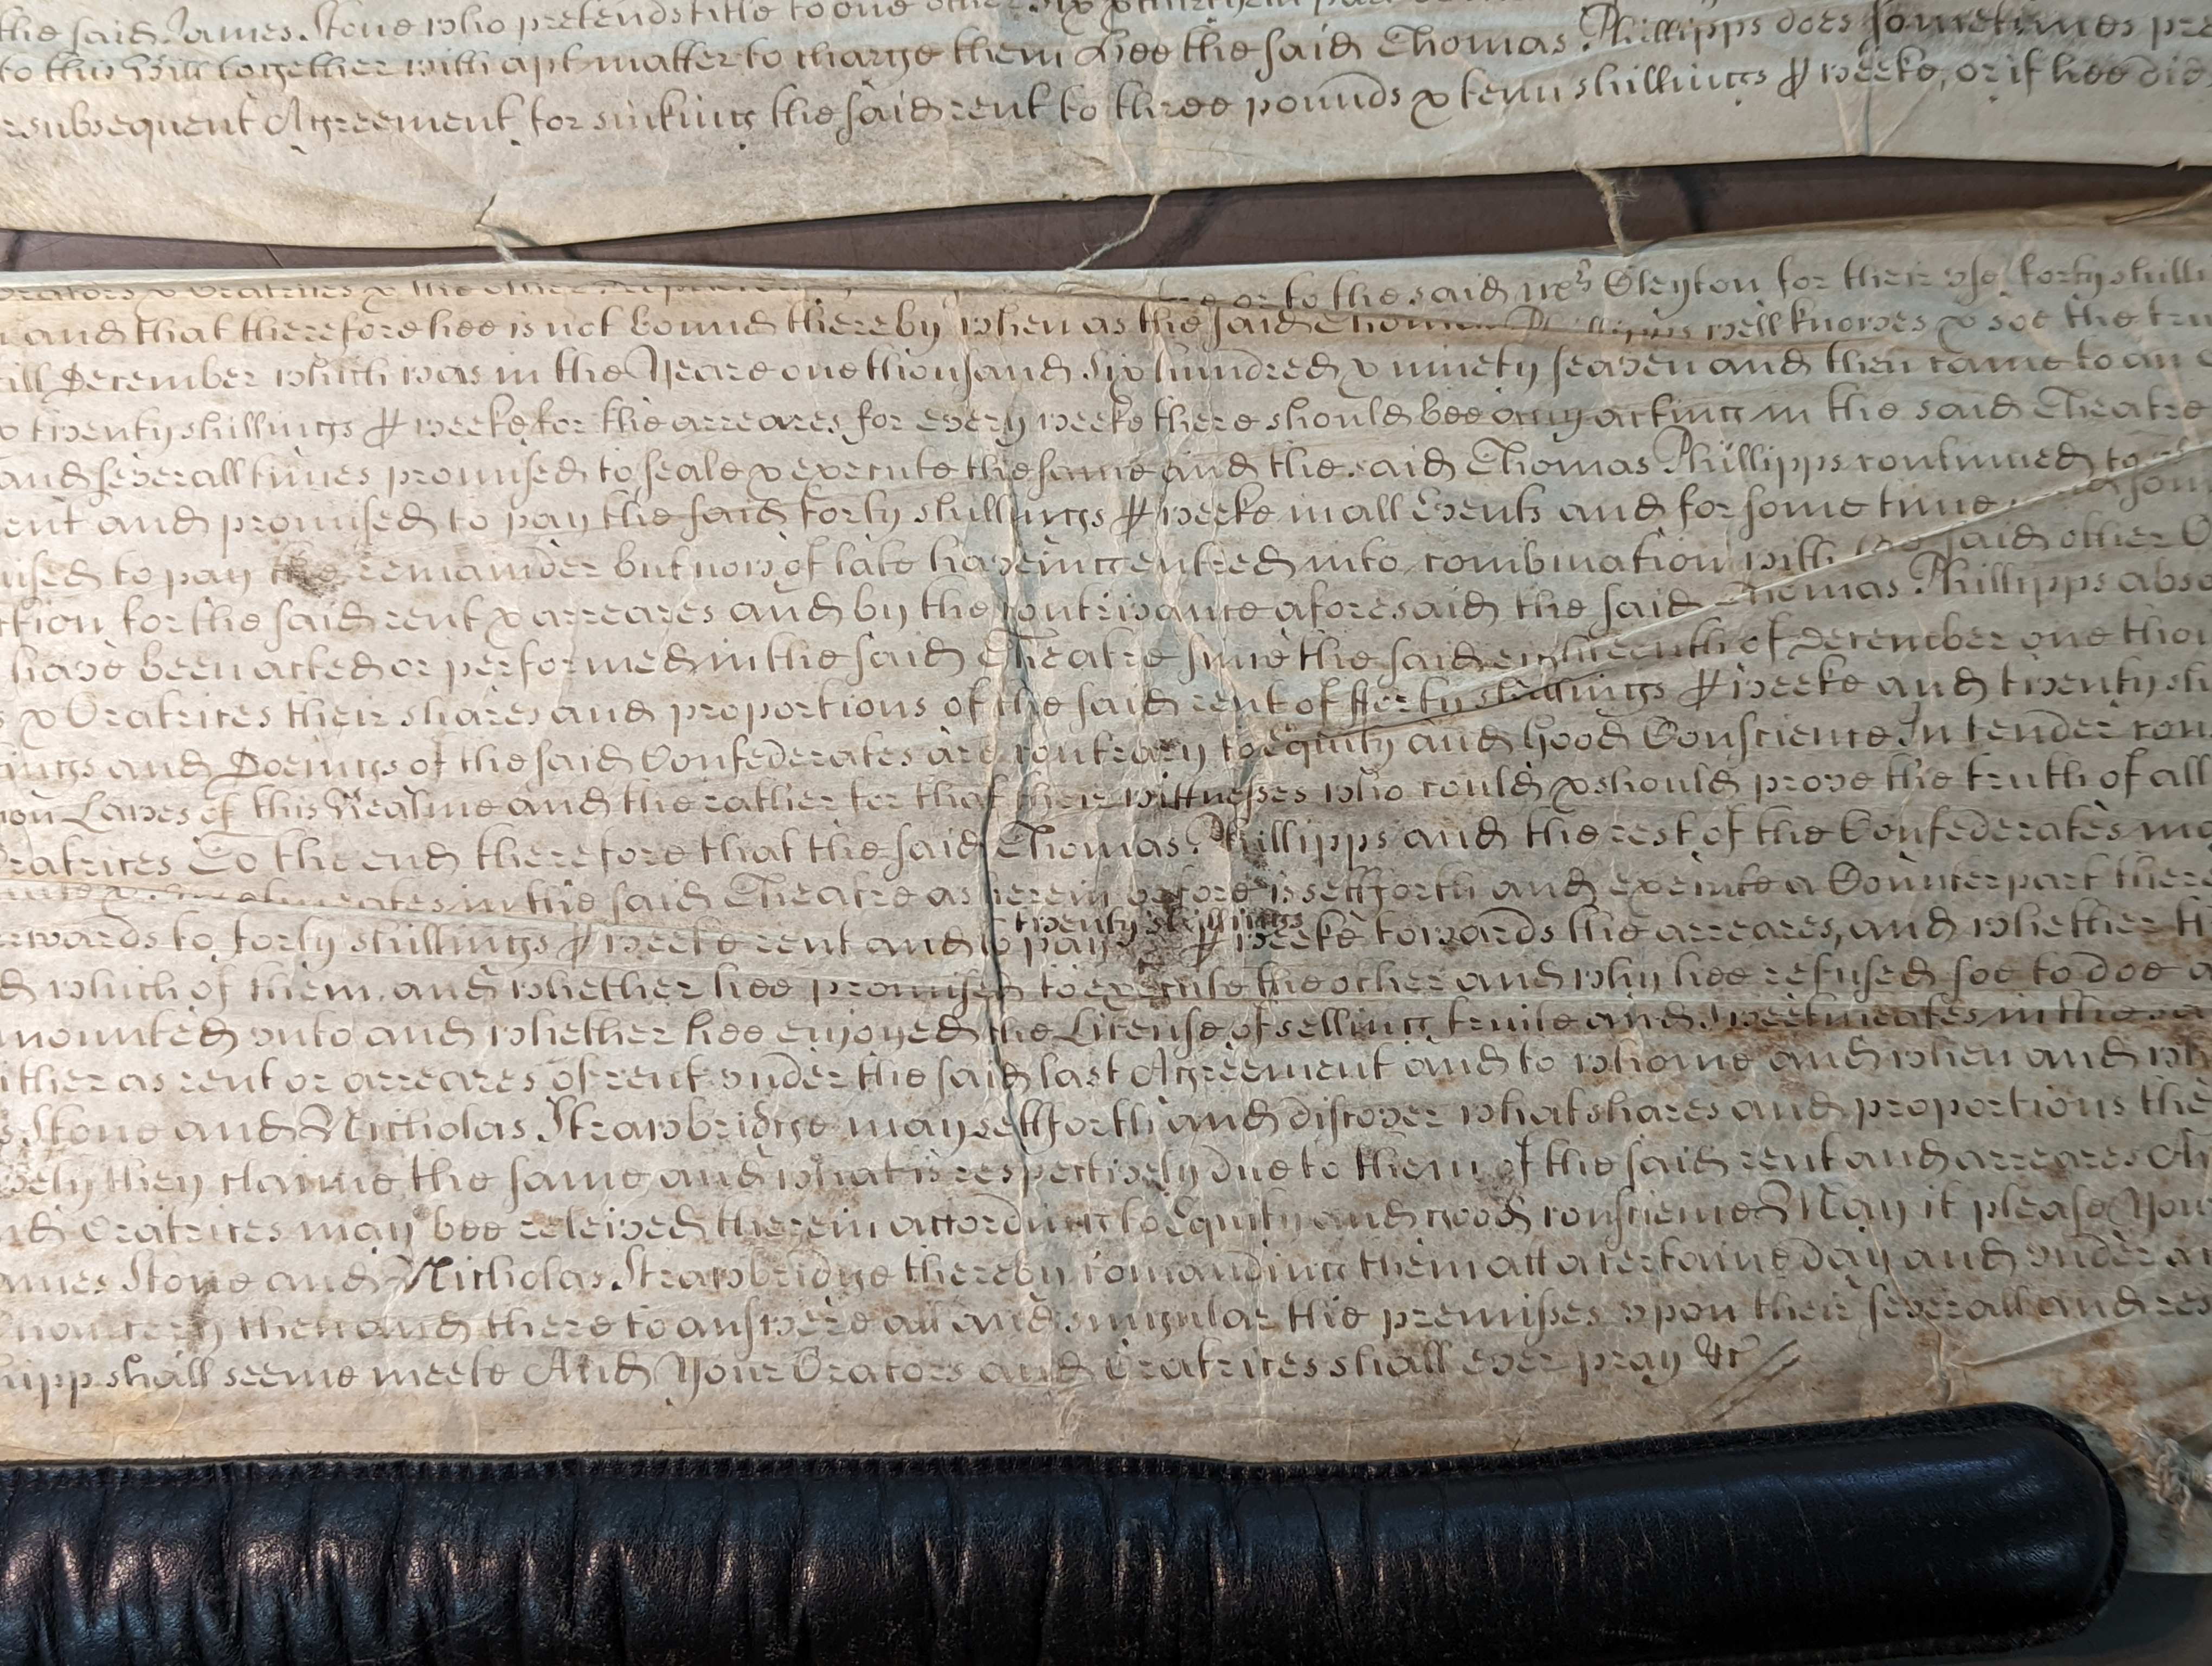 the said James Stone who pretends title to one other
to this Bill together with apt matter to charge them Hee the said Thomas Phillipps does sometimes pre
subsequent Agreement for sinking the said rent to three pounds & tenn shillings ⅌ weeke, or if hee did
Orators & Oratrices & the other or to the said Mrs Cleyton for their use forty shilli
and that therefore hee is not bound thereby when as the said Thomas Phillipps well knowes & soe the tru
till December which was in the Yeare one thousand six hundred & ninety seaven and then came to an
& twenty shillings ⅌ weeke for the arreares for every weeke there should bee any acting in the said Theatre
and severall times promised to seale & execute the same and the said Thomas Phillipps continued to
ent and promised to pay the said forty shillings ⅌ weeke in all Events and for some time
ised to pay the remainder but now of late haveing entred into combination with the said other
ction for the said rent & arreares and by the contrivance aforesaid the said Thomas Phillipps abso
have been acted or performed in the said Theatre since the said eighteenth of December one thou
& Oratrices their shares and proportions of the said rent of fforty shillings ⅌ weeke and twenty shi
ings and Doeings of the said Confederates are contrary to Equity and Good Conscience In tender con
on Lawes of this Realme and the rather for that their wittnesses who could & should prove the truth of all
Oratrices To the end therefore that the said Thomas Phillipps and the rest of the Confederates ma
in the said Theatre as herein before is settforth and execute a Counterpart there
rwards to forty shillings ⅌ weeke rent and to pay twenty shillings ⅌ weeke towards the arreares, and whether th
d which of them, and whether hee promised to execute the other and why hee refused soe to doe a
mounted unto and whether hee enjoyed the License of selling fruite and sweetmeates in the sa
ither as rent or arreares of rent under the said last Agreement and to whome and when and wh
s Stone and Nicholas Strawbridge may settforth and discover what shares and proportions the
vely they claime the same and what is respectively due to them of the said rent and arreares An
nd Oratrices may bee releived therein according to Equity and good conscience May it please You
ames Stone and Nicholas Strawbridge thereby comanding them att a certaine day and under a
Chancery then and there to answere all and singular the premisses upon their severall and res
hipp shall seeme meete And Your Orators and Oratrices shall ever pray &c